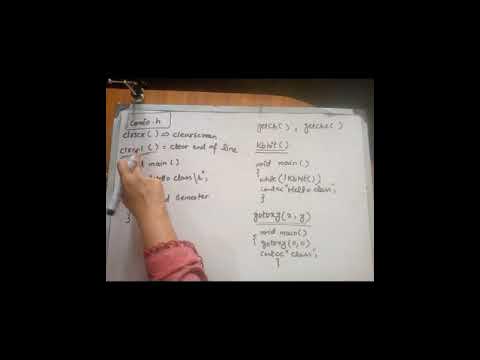 conio.h
clrscr() => clearscreen
clreol() = clear end of line
main()
Hello class\n";
Semester
}
getch(), getche()
kbhit()
void main()
{
while(!kbhit()
cout<<"Hello class";
}
gotoxy(x, y)
{ void main()
gotoxy(0,0)
cout<<"class";
}